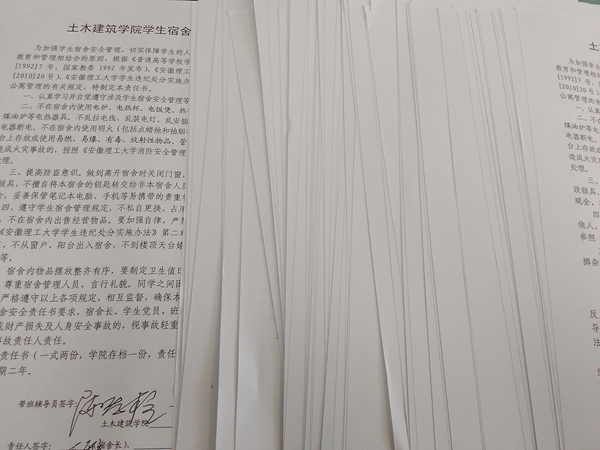 土木建筑学院学生宿舍
为加强学生宿舍安全管理，切实保障学生的人
教育和管理相结合的原则，根据《普通高等学校学
[1992]7号，国家教委1992年发布)、《安徽理工
[2010]20号)、《安徽理工大学学生违纪处分实施办
公寓管理的有关规定，特制定本责任书。
一、认真学习并自觉遵守涉及学生宿舍安全管理等
二、不在宿舍内使用电炉、电热杯、电饭煲、热
煤油炉等电热器具，不乱拉电线、乱装电灯、乱安插
电器断电。不在宿舍内使用明火(包括点蜡烛和抽烟
台上存放或使用易燃、易爆、有毒、放射性物品、管
造成火灾事故的，按照《安徽理工大学消防安全管理
处理。
三、提高防盗意识。做到离开宿舍时关闭门窗、
锁具，不擅自将本宿舍的钥匙转交给非本宿舍人员
金，妥善保管笔记本电脑、手机等易携带的贵重
四、遵守学生宿舍管理规定，不私自更换、占用
，不在宿舍内出售经营物品。要加强自律，严
《安徽理工大学学生违纪处分实施办法》第二章
、不从窗户、阳台出入宿舍，不到楼顶天台
等。
宿舍内物品摆放整齐有序，要制定卫生值日
尊重宿舍管理人员，言行礼貌。同学之间团
严格遵守以上各项规定，相互监督，确保本
舍安全责任书要求，宿舍长、学生党员、班
财产损失及人身安全事故的，视事故轻重
故责任人责任。
责任书(一式两份，学院存档一份，责任
期二年。
带班辅导员签字：
土木建筑学院
责任人签字：
舍长)、
土
为加
教育和管
[1992]7
[2010]20
公寓管理
一、
二、
煤油炉等
电器断电
台上存放
造成火灾
处理。
三
次锁具
现金，
四
他人，
参照
五
掷杂
反
导
法
生